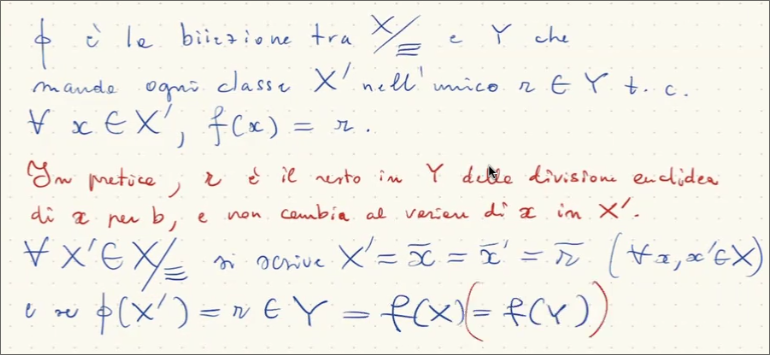 ϕ è la biiezione tra X/≡ e Y che
manda ogni classe X' nell'unico r ∈ Y t. c.
∀ x ∈ X', f(x) = r.
In pratica, r è il resto in Y della divisione euclidea
di x per b, e non cambia al variare di x in X'.
∀ X' ∈ X/≡ si scrive X' = x̄ = x̄' = r̄ (∀ x, x' ∈ X)
e se ϕ(X') = r ∈ Y = f(X) (= f(Y))